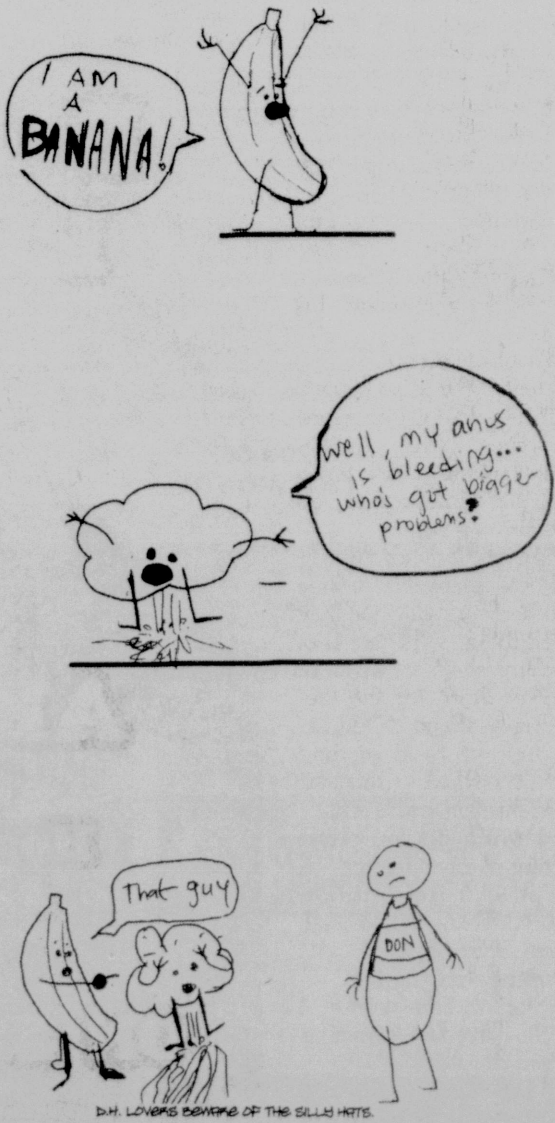 I AM
A
BANANA!
well, my anus
is bleeding...
who's got bigger
problems?
That guy
DON
D.H. LOVERS BEWARE OF THE SILLY HATS.